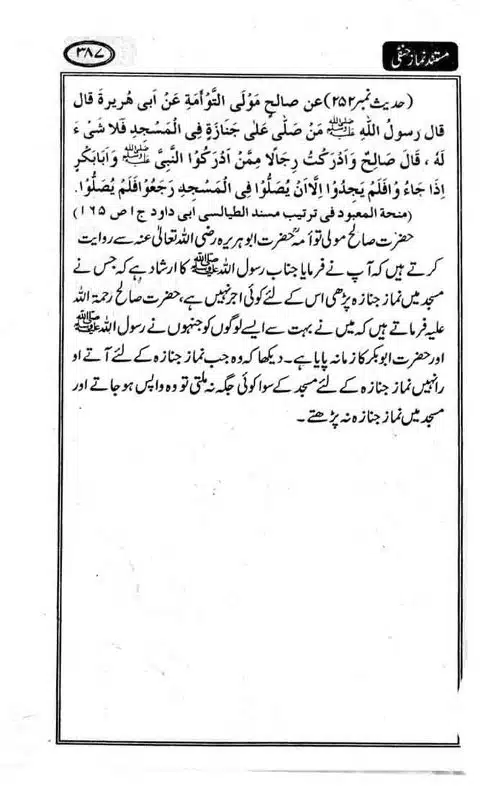 مستند نماز حنفی
۳۸۷
(حدیث نمبر ۲۵۲) عن صالحٍ مَوْلَی التَّوْأَمَةِ عَنْ اَبی هُریرةَ قال
قال رسولُ اللهِ ﷺ مَنْ صَلّٰی عَلٰی جَنَازَةٍ فِی الْمَسْجِدِ فَلَا شَیْءَ
لَهٗ ، قَالَ صَالِحٌ وَاَدْرَکْتُ رِجَالًا مِمَّنْ اَدْرَکُوْا النَّبِیَّ ﷺ وَاَبَابَکْرٍ
اِذَا جَاءُ وْا فَلَمْ یَجِدُوْا اِلَّا اَنْ یُصَلُّوْا فِی الْمَسْجِدِ رَجَعُوْا فَلَمْ یُصَلُّوْا.
(منحة المعبود فی ترتیب مسند الطیالسی ابی داود ج۱ ص ۱۶۵)
حضرت صالح مولی توأمہؒ حضرت ابوہریرہ رضی اللہ تعالیٰ عنہ سے روایت
کرتے ہیں کہ آپ نے فرمایا جناب رسول اللہ ﷺ کا ارشاد ہے کہ جس نے
مسجد میں نماز جنازہ پڑھی اس کے لئے کوئی اجر نہیں ہے، حضرت صالح رحمۃ اللہ
علیہ فرماتے ہیں کہ میں نے بہت سے ایسے لوگوں کو جنہوں نے رسول اللہ ﷺ
اور حضرت ابوبکر کا زمانہ پایا ہے۔ دیکھا کہ وہ جب نماز جنازہ کے لئے آتے او
رانہیں نماز جنازہ کے لئے مسجد کے سوا کوئی جگہ نہ ملتی تو وہ واپس ہو جاتے اور
مسجد میں نماز جنازہ نہ پڑھتے ۔